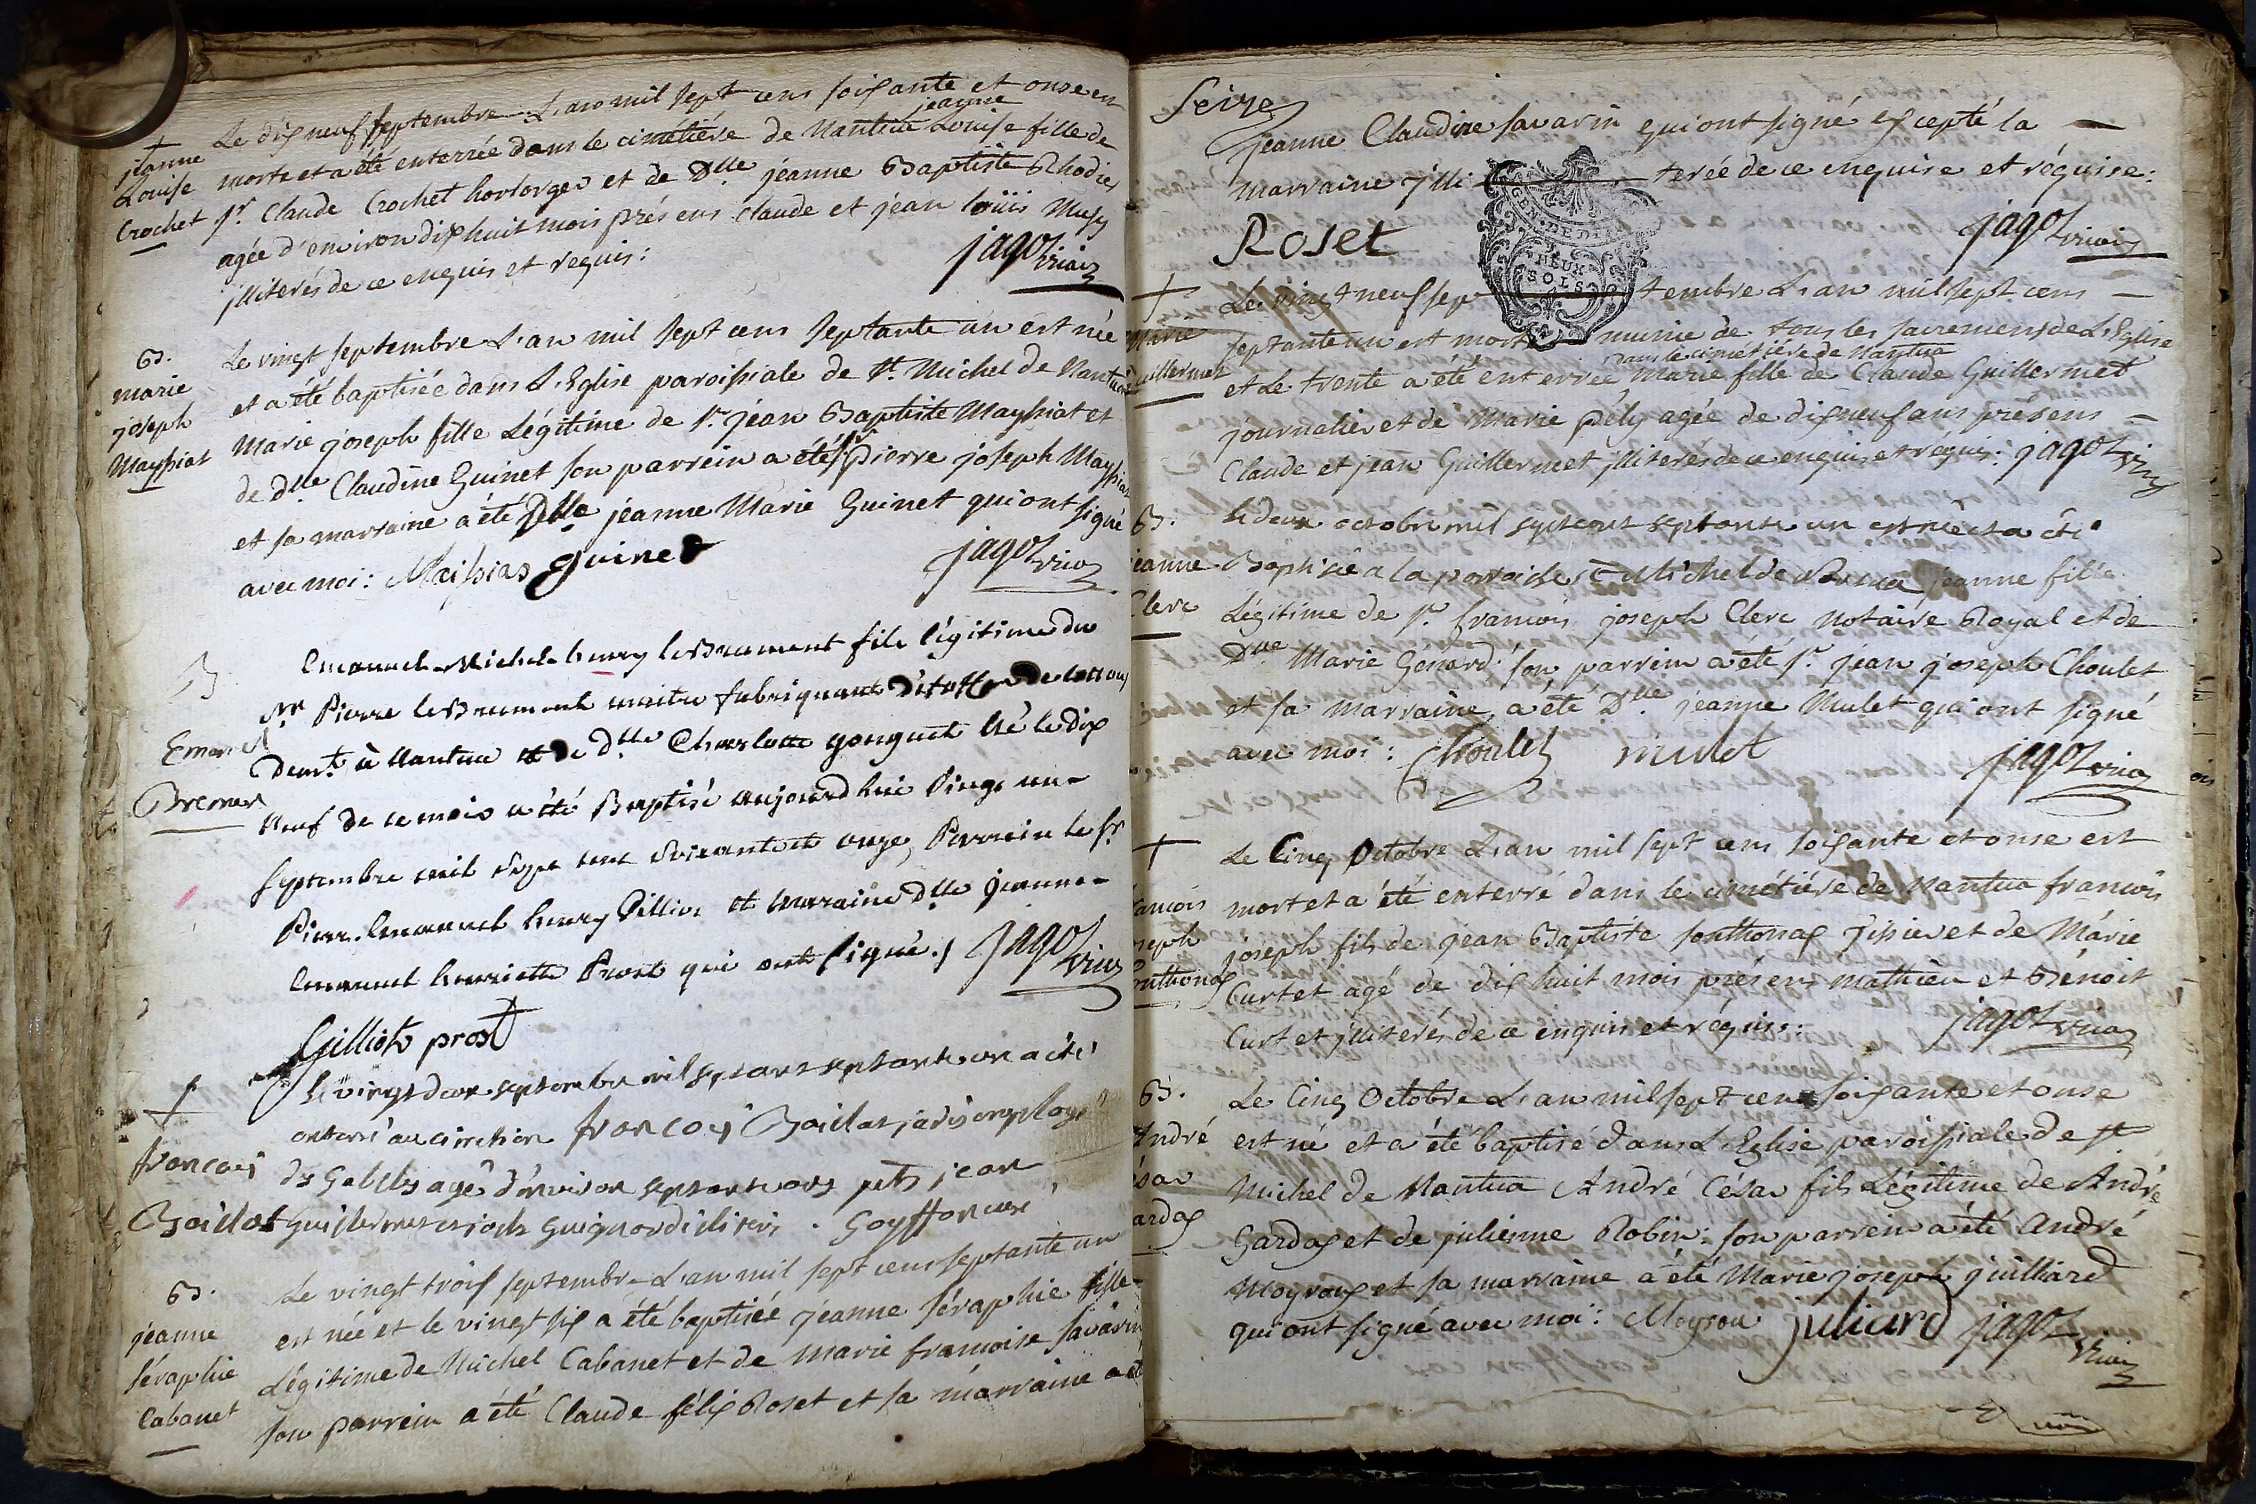 Le dix neuf septembre L'an mil sept cens soixante et onse est
jeanne
morte et a été enterrée dans le cimétière de Nantua Louise fille de
Sr. Claude Crochet horloger et de Dlle jéanne Baptiste Rhodier
agée d'environ dix huit mois présens Claude et jéan loüis Musy
jlliterés de ce enquis et requis:
jagoz vicaire
+
jéanne
Louise
Crochet
B.
marie
joseph
Mayssiat
Le vingt septembre L'an mil sept cens septante un est née
et a été baptisée dans L'Eglise paroissiale de St. Michel de Nantua
Marie joseph fille Légitime de Sr. jéan Baptiste Mayssiat et
de dlle Claudine Guinet son parrein a été Sr pierre joseph Mayssiat
et sa marraine a été Dlle jéanne Marie Guinet qui ont signé
avec moi: Maissiat guinet
jagoz vica
B
Emanuel
Bremant
Emanuel Michel henry leBrument fils légitime du
Sr Pierre leBrument maitre fabriquant d'étoffe de cottons
demt. à Nantua et de dlle Charlotte gonguet Né le dix
neuf de ce mois a été Baptisé aujourdhui Vingt un
septembre mil sept cent soixante et onze, Parrein le Sr
Pierre Emanuel henry Gilliot et Marraine dlle jeanne
Emanuel henriette Prost qui ont signé.
jagoz vica
Gilliot prost
+
francois
Baidat
le vingt deux septembre mil sept cent septante un a été
enterré au cimetiere francois Baidat jadis employé
ds Gabelles agé d'environ septante ans pnts jean
Guillermet et joseph Guignard iliterés. Goyffon curé
B.
jeanne
séraphie
Cabanet
Le vingt trois septembre L'an mil sept cens septante un
est née et le vingt six a été baptisée jéanne séraphie fille
Légitime de Michel Cabanet et de Marie francoise savarin
son parrein a été Claude félix Roset et sa marraine a été
Seize
jeanne Claudine savarin qui ont signé excepté la
marraine jlli terée de ce enquise et réquise:
Roset
jagoz vicaire
GEN. DE DI
DEUX
SOLS
+
Marie
Guillermet
Le vingt neuf sep tembre L'an mil sept cens
septante un est morte munie de tous les sacremens de L'Eglise
dans le cimetiére de Nantua
et Le trente a été enterrée Marie fille de Claude Guillermet
journalier et de Marie pély agée de dix neuf ans présens
Claude et jean Guillermet jlliterés de ce enquis et réquis: jagoz vic
B.
jeanne
Clerc
le deux octobre mil sept cent septante un est née et a été
Baptisée a la paroisse St Michel de Nantua jeanne fille
Légitime de Sr. francois joseph Clerc Notaire Royal et de
Dlle Marie Génard: son parrein a été Sr. jéan joseph Choulet
et sa marraine a été Dlle jéanne Mulet qui ont signé
avec moi: Choulet mulet
jagoz vica
+
francois
joseph
Sonthonax
Le Cinq Octobre L'an mil sept cens soixante et onse est
mort et a été enterré dans le cimétiére de Nantua francois
joseph fils de jean Baptiste sonthonax Tissier et de Marie
Curtet agé de dix huit mois présens mathieu et Bénoit
Curtet jlliterés de ce enquis et réquis:
jagoz vica
B.
André
César
Gardax
Le Cinq Octobre L'an mil sept cens soixante et onse
est né et a été baptisé dans L'Eglise paroissiale de St
Michel de Nantua André César fils Légitime de André
Gardax et de julienne Robin: son parrein a été André
Moyroux et sa marraine a été Marie joseph juilliard
qui ont signé avec moi: Moyrou juliard jagoz
vicaire